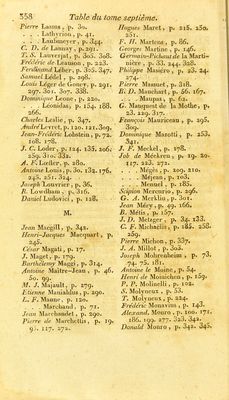 358 Table du tome septième.
Pierre Lasma, p. 30.
. . . Lathyrion, p. 41.
. . . Loulimeyer, p. 344.
C. D. de Launay, p. 291.
T. S. Lauverjat, p. 305. 308.
Frédéric de Leauson, p. 223.
Ferdinand Leber, p. 305. 347.
Samuel Lédel, p. 298.
Louis Léger de Goney, p. 291.
297. 301. 307. 338.
Dominique Leone, p. 210.
. . . Leonidas, p. 134. 188.
266.
Charles Leslie, p. 347.
André Levret, p. 120. 121. 309.
Jean-Frédéric Lobstein, p. 72.
108. 178.
J. C. Loder, p. 124. 135. 206.
259. 310. 332.
A. F. Loefler, p. 280.
Antoine Louis, p. 30. 132. 176.
243. 251. 324.
Joseph Louvrier, p. 36.
R. Lowdham, p. 316.
Daniel Ludovici, p. 128.
M.
Jean Macgill, p. 342.
Henri-Jacques Macquart, p.
245.
César Magati, p. 17.
J. Maget, p. 179.
Barthélemy Maggi, p. 314.
Antoine Maître-Jean, p. 46.
50. 99.
M. J. Majault, p. 279.
Etienne Manialdus, p. 290.
L. F. Manne, p. 120.
. . . Marchand, p. 71.
Jean Marchandet, p. 290.
Pierre de Marchettis, p. 19.
91. 117. 272.
Hugues Maret, p. 215. 250.
251.
F. H. Martens, p. 86.
Georges Martine, p. 146.
Germain-Pichaut de la Marti-
nière, p. 33. 244. 328.
Philippe Masiero, p. 23. 24.
274.
Pierre Massuet, p. 318.
B. D. Mauchart, p. 66. 167.
. . . Maupas, p. 62.
G. Mauquest de la Mothe, p.
23. 229. 317.
François Mauriceau, p. 295.
309.
Dominique Mazotti, p. 253.
341.
J. F. Meckel, p. 178.
Job de Méekren, p. 19. 20.
117. 223. 272.
. . . Mégès, p. 209. 210.
. . . Méjean, p. 103.
. . . Menuel, p. 185.
Scipion Mercurio, p. 296.
G. A. Merklin, p. 301.
Jean Méry, p. 49. 166.
B. Métis, p. 157.
J. D. Metzger, p. 34. 133.
C. F. Michaelis, p. 185. 258.
259.
Pierre Michon, p. 337.
J. A. Millot, p. 303.
Joseph Mohrenheim, p. 73.
74. 75. 181.
Antoine le Moine, p. 54.
Henri de Moinichen, p. 159.
P. P. Molinelli, p. 102.
S. Molyneux, p. 53.
T. Molyneux, p. 224.
Frédéric Monavius, p. 143.
Alexand. Monro, p. 100. 171.
186. 199. 277. 323. 342.
Donald Monro, p. 342. 345.